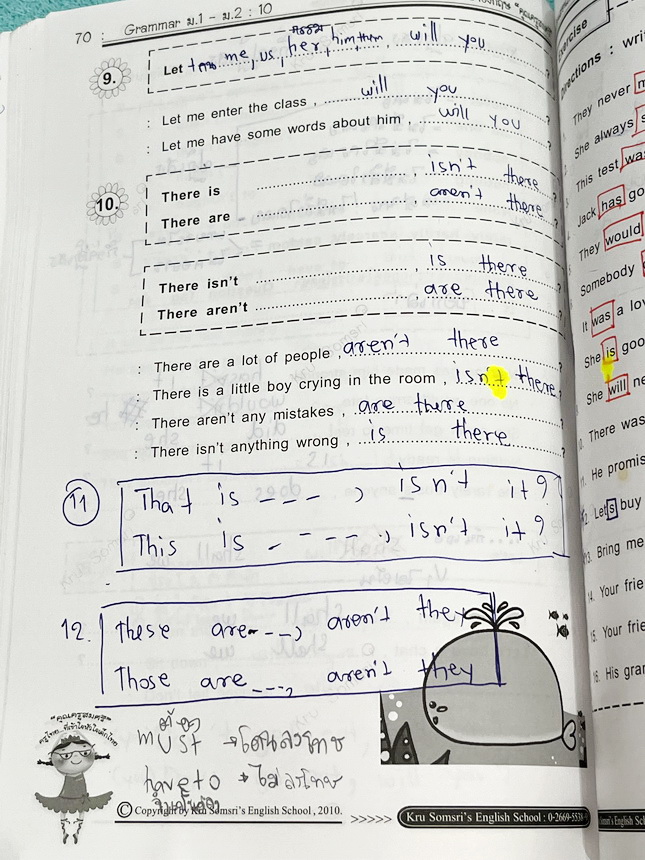 70 : Grammar ม.1 - ม.2 : 10
9. Let me, us, her, him, them, will you ?
กรรม
: Let me enter the class , will you ?
: Let me have some words about him , will you ?
10. There is , isn't there ?
There are , aren't there ?
There isn't , is there ?
There aren't , are there ?
: There are a lot of people aren't there ?
: There is a little boy crying in the room , isn't there ?
: There aren't any mistakes , are there ?
: There isn't anything wrong , is there ?
11 That is --- , isn't it?
This is ---- , isn't it?
12. These are---, aren't they
Those are---, aren't they
ต้อง
must → โดนลงโทษ
have to → ไม่ลงโทษ
"คุณครูสมศรี"
© Copyright by Kru Somsri's English School , 2010.
>>>>> Kru Somsri's English School : 0-2669-5538-9
Exercise
Directions : wri
They never
She always s
This test wa
Jack has go
They would
Somebody
It was a lo
She is goo
She will ne
10. There was
11. He promis
12. Let's buy
13. Bring me
14. Your frie
15. Your frie
16. His gran
Somsri's English Sc